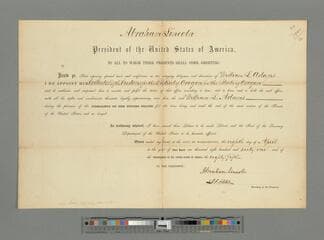 Abraham Lincoln
President of the United States of America,
TO ALL TO WHOM THESE PRESENTS SHALL COME, GREETING:
Know ye, That reposing special trust and confidence in the integrity, diligence and discretion of William L. Adams
I DO APPOINT HIM Collector of Customs for the District of Oregon in the State of Oregon
and do authorize and empower him to execute and fulfil the duties of that office according to law; and to have and to hold the said office,
with all the rights and emoluments thereunto legally appertaining unto him the said William L. Adams
during the pleasure of the President of the United States for the time being, and until the end of the next session of the Senate
of the United States, and no longer.
In testimony whereof, I have caused these Letters to be made Patent and the Seal of the Treasury
Department of the United States to be hereunto affixed.
Given under my hand at the city of Washington, the eighth day of April
in the year of our Lord one thousand eight hundred and sixty one and of
the Independence of the United States of America, the eighty fifth
BY THE PRESIDENT:
Abraham Lincoln
Secretary of the Treasury.